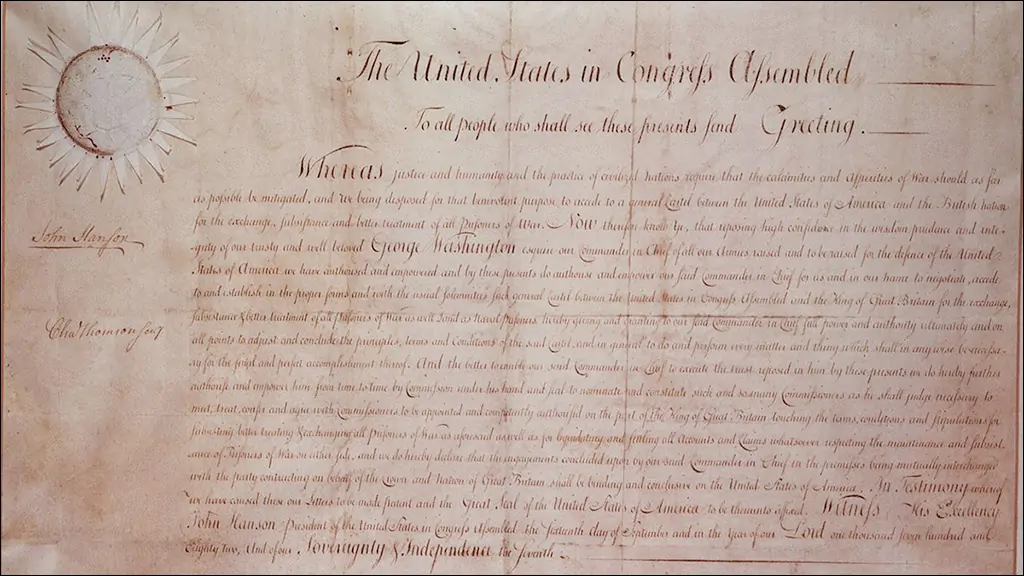 The United States in Congress Assembled
To all people who shall see these presents send Greeting.
Whereas justice and humanity and the practice of civilized nations require that the calamities and asperities of War should as far
as possible be mitigated, and we being disposed for that benevolent purpose to accede to a general Cartel between the United States of America and the British nation
for the exchange, subsistance and better treatment of all Prisoners of war. Now therefore know ye, that reposing high confidence in the wisdom prudence and inte-
John Hanson
grity of our trusty and well beloved George Washington esquire our Commander in Chief of all our Armies raised and to be raised for the defence of the United
States of America we have authorised and empowered and by these presents do authorise and empower our said Commander in Chief for us and in our name to negotiate, accede
to and establish in the proper forms and with the usual solemnities such general Cartel between the United States in Congress Assembled and the King of Great Britain for the exchange,
subsistance & better treatment of all Prisoners of War as well Land as Naval Prisoners, hereby giving and granting to our said Commander in Chief full power and authority ultimately and on
Cha Thomson secy
all points to adjust and conclude the principles, terms and Conditions of the said Cartel, and in general to do and perform every matter and thing which shall in any wise be necessa-
ry for the final and perfect accomplishment thereof. And the better to enable our said Commander in Chief to execute the trust reposed in him by these presents we do hereby further
authorise and empower him from time to time by Commission under his hand and seal to nominate and constitute such and so many Commissioners as he shall judge necessary to
meet, treat, confer and agree with Commissioners to be appointed and competently authorised on the part of the King of Great Britain touching the terms, conditions and stipulations for
subsisting better treating & exchanging all Prisoners of War as aforesaid as well as for liquidating and settling all Accounts and Claims whatsoever respecting the maintenance and subsist-
ance of Prisoners of War on either side, and we do hereby declare that the engagements concluded upon by our said Commander in Chief in the premises being mutually interchanged
with the party contracting on behalf of the Crown and Nation of Great Britain shall be binding and conclusive on the United States of America. In Testimony whereof
we have caused these our Letters to be made patent and the Great Seal of the United States of America to be thereunto affixed. Witness His Excellency
John Hanson President of the United States in Congress Assembled the sixteenth day of September and in the year of our Lord one thousand seven hundred and
Eighty two, And of our Sovereignty & Independence the seventh